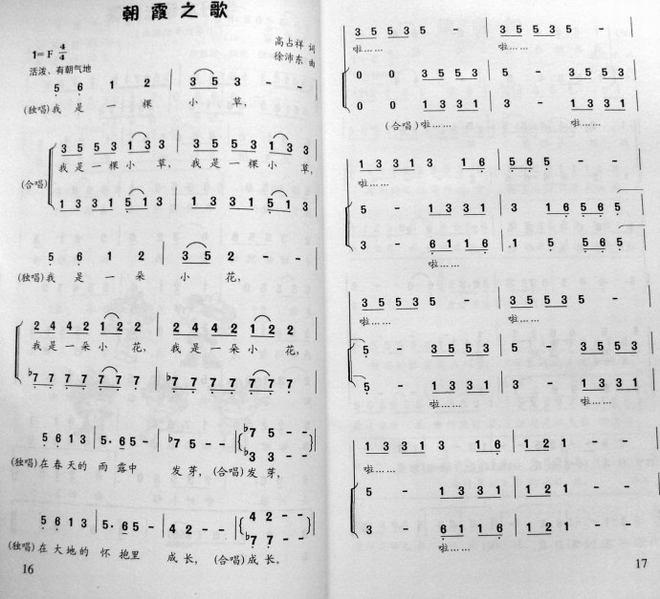 朝霞之歌
1=F 4/4
高占祥 词
徐沛东 曲
活泼、有朝气地
5 6 1 2 | 3 5 3 - - |
(独唱)我 是 一 棵 小 草,
3 5 5 3 1 3 3 | 3 5 5 3 1 3 3 |
我是一棵小 草, 我是一棵小 草,
(合唱)
1 3 3 1 5 1 3 | 1 3 3 1 5 1 3 |
5 6 1 2 | 3 5 2 - - |
(独唱)我 是 一 朵 小 花,
2 4 4 2 1 2 2 | 2 4 4 2 1 2 2 |
我是一朵小 花, 我是一朵小 花,
♭7 7 7 7 7 7 7 | ♭7 7 7 7 7 7 7 |
5 6 1 3 | 5· 6 5 - | ♭7 5 - - | ♭7 5 - - |
♭3 3 - -
(独唱)在春天的 雨 露中 发芽, (合唱)发芽,
5 6 1 3 | 5· 6 5 - | 4 2 - - | 4 2 - - |
♭7 7 - -
(独唱)在大地的 怀 抱里 成长, (合唱)成长。
16
3 5 5 3 5 - - | 3 5 5 3 5 - - |
啦…… 啦……
0 0 3 5 5 3 | 5 - 3 5 5 3 |
0 0 1 3 3 1 | 3 - 1 3 3 1 |
(合唱)啦…… 啦……
1 3 3 1 3 1 6 | 5 6 5 - - |
啦……
5 - 1 3 3 1 | 3 1 6 5 6 5 |
3 - 6 1 1 6 | 1 5 5 6 5 |
啦……
3 5 5 3 5 - - | 3 5 5 3 5 - - |
啦…… 啦……
5 - 3 5 5 3 | 5 - 3 5 5 3 |
5 - 1 3 3 1 | 3 - 1 3 3 1 |
啦…… 啦……
1 3 3 1 3 1 6 | 1 2 1 - - |
啦……
5 - 1 3 3 1 | 1 2 1 - - |
3 - 6 1 6 | 1 2 1 - - |
啦……
17